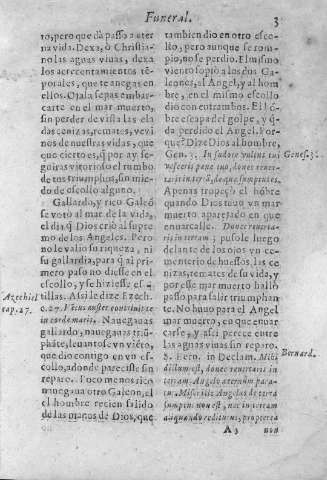 Funeral.
3
to, pero que dà passo a eter
na vida. Dexa, ò Christia-
no las aguas viuas, dexa
los acrecentamientos tẽ-
porales, que te anegas en
ellos. Ojala sepas embar-
carte en el mar muerto,
sin perder de vista las ela
das cenizas, remates, ve vi
nos de nuestras vidas; que
que cierto es, q̃ por ay se-
guiras vitorioso el rumbo
de tus triumphos, sin mie-
do de escollo alguno.
Gallardo, y rico Galeõ
se votò al mar de la vida,
el dia q̃ Dios criò al supre
mo de los Angeles. Pero
no le valio su riqueza, ni
su gallardia, para q̃ al pri-
mero paso no diesse en el
escollo, y se hiziesse es-
tillas. Assi le dize Ezech.
c. 27. Ventus auster contriuit te
in corde maris. Nauegauas
gallardo, nauegauas triũ-
phãte, leuantose vn viẽto,
que dio contigo en vn es-
collo, adonde pareciste sin
reparo. Poco menos rico
nauegaua otro Galeon, el
el hombre recien salido
de las manos de Dios, que
Azechiel
cap. 27.
tambien dio en otro esco-
llo, pero aunque se rom-
pio, no se perdio. El mismo
viento soplò a los dos Ga-
leones, al Angel, y al hom
bre, en el mismo escollo
dio con entrambos. El hõ
bre escapa del golpe, y q̃-
da perdido el Angel. Por-
que? Dize Dios al hombre,
Gen. 3. In sudore vultus tui
vesceris pane tuo, donec reuer-
taris in terrã, de qua sumptus es.
Apenas tropeçò el hõbre
quando Dios tuuo vn mar
muerto aparejado en que
enuarcalle. Donec reuerta-
ris in terram; pusole luego
delante de los ojos vn ce-
menterio de huessos, las ce
nizas, remates de su vida, y
por esse mar muerto hallò
passo para salir triumphan
te. No huuo para el Angel
mar muerto, en que enuar
carse, y assi perece entre
las aguas viuas sin reparo.
S. Bern. in Declam. Mihi
dictum est, donec reuertaris in
terram. Angelo æternũm para-
tus. Miserilis Angelus de terra
sumptus non est, nec in terram
aliquando rediturus, propterea
Genes. 3.
Bernard.
A 3
non